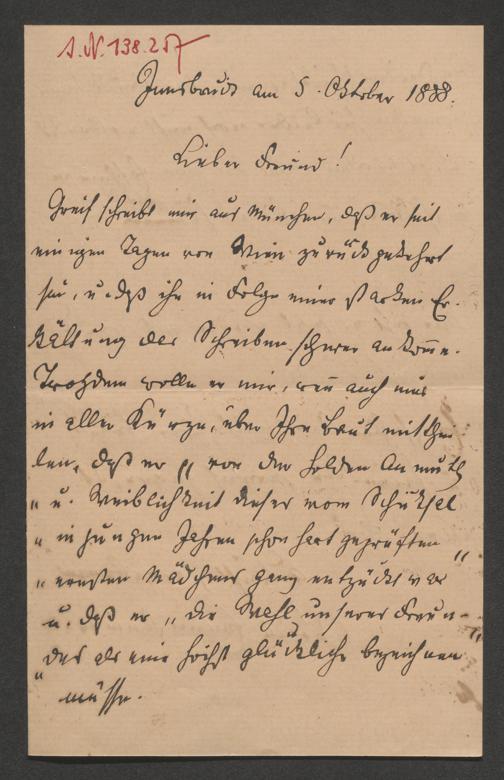 J.N. 138.257
Innsbruck am 5. Oktober 1888.
Lieber Freund!
Greif schreibt mir aus München, daß er seit
einigen Tagen von Wien zurückgekehrt
sei, u. daß ihn in Folge einer starken Er-
kältung das Schreiben schwer ankom̄e.
Trotzdem wolle er mir, wen̄ auch nur
in aller Kürze, über Ihre Braut mitthei-
len, daß er „von der holden Anmuth
„u. Weiblichkeit dieses vom Schicksal
„in jungen Jahren schon hart geprüften
„ernsten Mädchens ganz entzückt war“
u. daß er „die Wahl unseres Freun-
„des als eine höchst glückliche bezeichnen“
müsse.